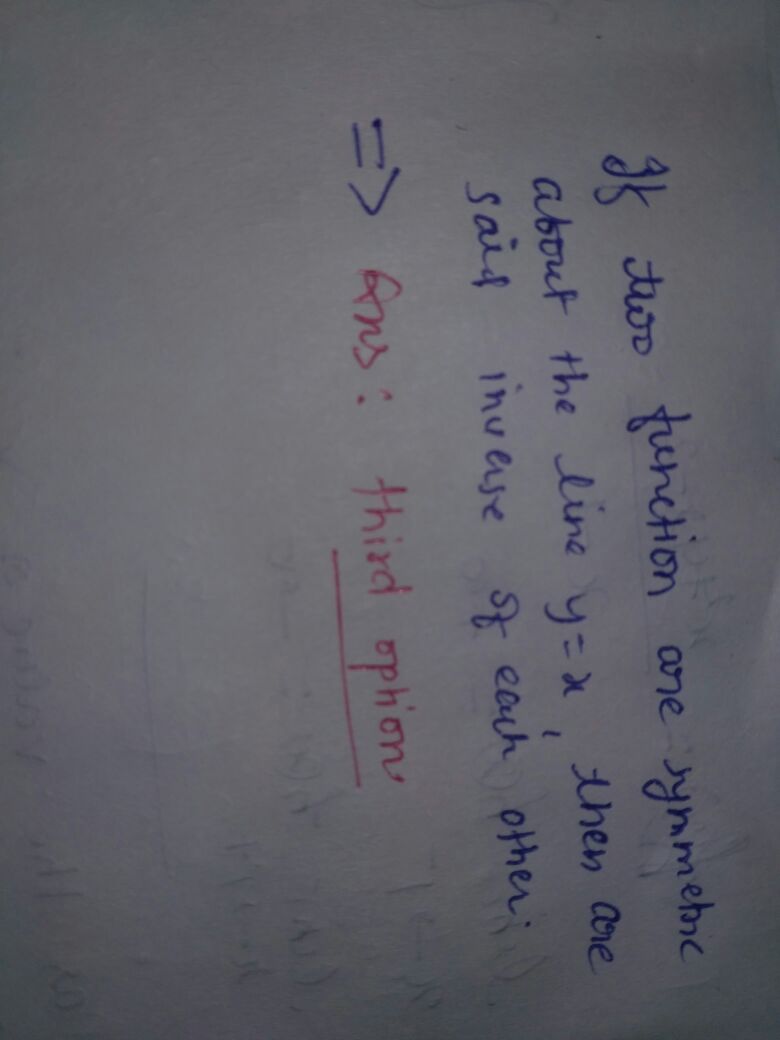 If two function are symmetric
about the line y=x, then are
said inverse of each other.
=> Ans: third option